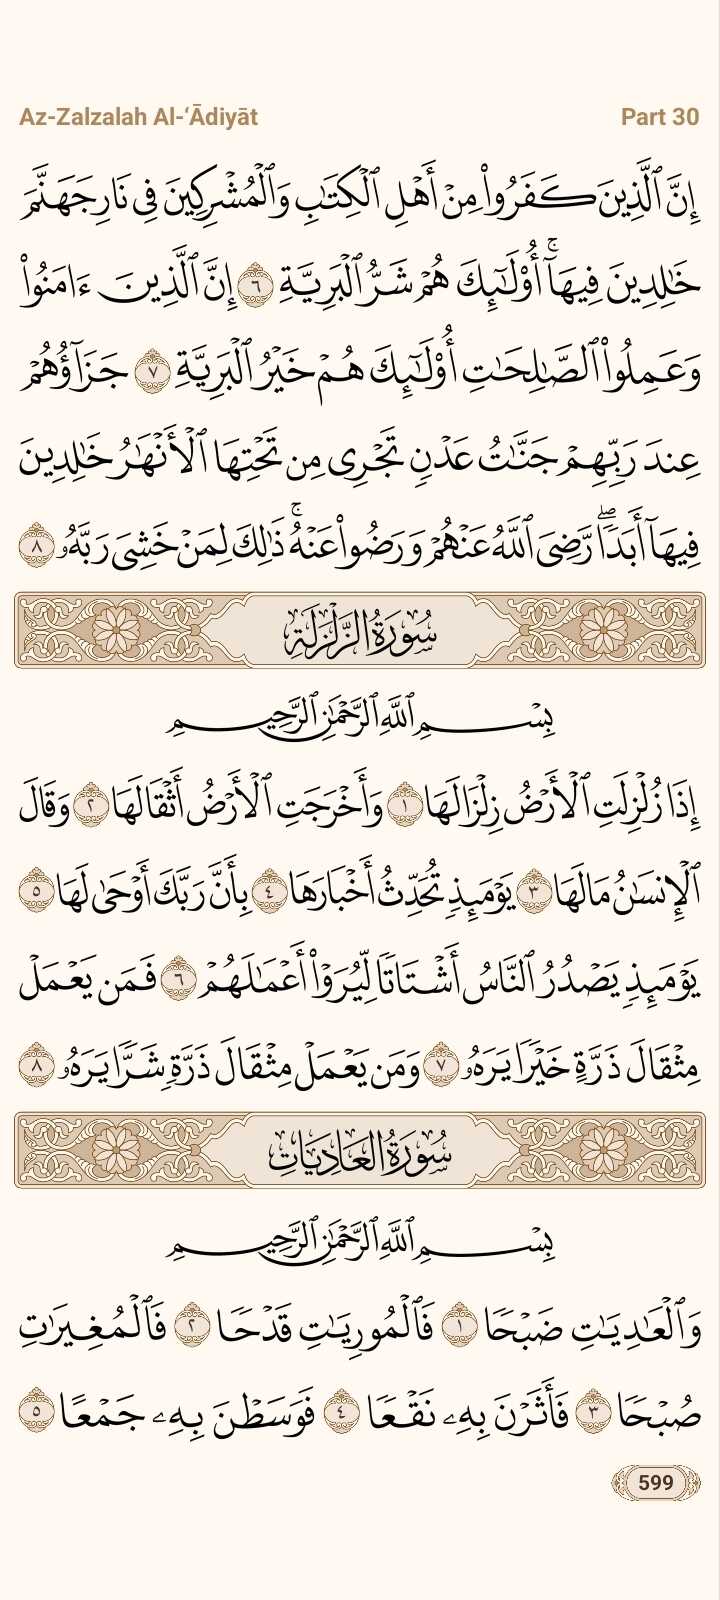 Az-Zalzalah Al-‘Ādiyāt Part 30
إِنَّ ٱلَّذِينَ كَفَرُوا۟ مِنْ أَهْلِ ٱلْكِتَـٰبِ وَٱلْمُشْرِكِينَ فِى نَارِ جَهَنَّمَ
خَـٰلِدِينَ فِيهَآ ۚ أُو۟لَـٰٓئِكَ هُمْ شَرُّ ٱلْبَرِيَّةِ ٦ إِنَّ ٱلَّذِينَ ءَامَنُوا۟
وَعَمِلُوا۟ ٱلصَّـٰلِحَـٰتِ أُو۟لَـٰٓئِكَ هُمْ خَيْرُ ٱلْبَرِيَّةِ ٧ جَزَآؤُهُمْ
عِندَ رَبِّهِمْ جَنَّـٰتُ عَدْنٍ تَجْرِى مِن تَحْتِهَا ٱلْأَنْهَـٰرُ خَـٰلِدِينَ
فِيهَآ أَبَدًا ۖ رَّضِىَ ٱللَّهُ عَنْهُمْ وَرَضُوا۟ عَنْهُ ۚ ذَٰلِكَ لِمَنْ خَشِىَ رَبَّهُۥ ٨
سُورَةُ الزَّلْزَلَةِ
بِسْمِ ٱللَّهِ ٱلرَّحْمَـٰنِ ٱلرَّحِيمِ
إِذَا زُلْزِلَتِ ٱلْأَرْضُ زِلْزَالَهَا ١ وَأَخْرَجَتِ ٱلْأَرْضُ أَثْقَالَهَا ٢ وَقَالَ
ٱلْإِنسَـٰنُ مَا لَهَا ٣ يَوْمَئِذٍ تُحَدِّثُ أَخْبَارَهَا ٤ بِأَنَّ رَبَّكَ أَوْحَىٰ لَهَا ٥
يَوْمَئِذٍ يَصْدُرُ ٱلنَّاسُ أَشْتَاتًا لِّيُرَوْا۟ أَعْمَـٰلَهُمْ ٦ فَمَن يَعْمَلْ
مِثْقَالَ ذَرَّةٍ خَيْرًا يَرَهُۥ ٧ وَمَن يَعْمَلْ مِثْقَالَ ذَرَّةٍ شَرًّا يَرَهُۥ ٨
سُورَةُ العَادِيَاتِ
بِسْمِ ٱللَّهِ ٱلرَّحْمَـٰنِ ٱلرَّحِيمِ
وَٱلْعَـٰدِيَـٰتِ ضَبْحًا ١ فَٱلْمُورِيَـٰتِ قَدْحًا ٢ فَٱلْمُغِيرَٰتِ
صُبْحًا ٣ فَأَثَرْنَ بِهِۦ نَقْعًا ٤ فَوَسَطْنَ بِهِۦ جَمْعًا ٥
599